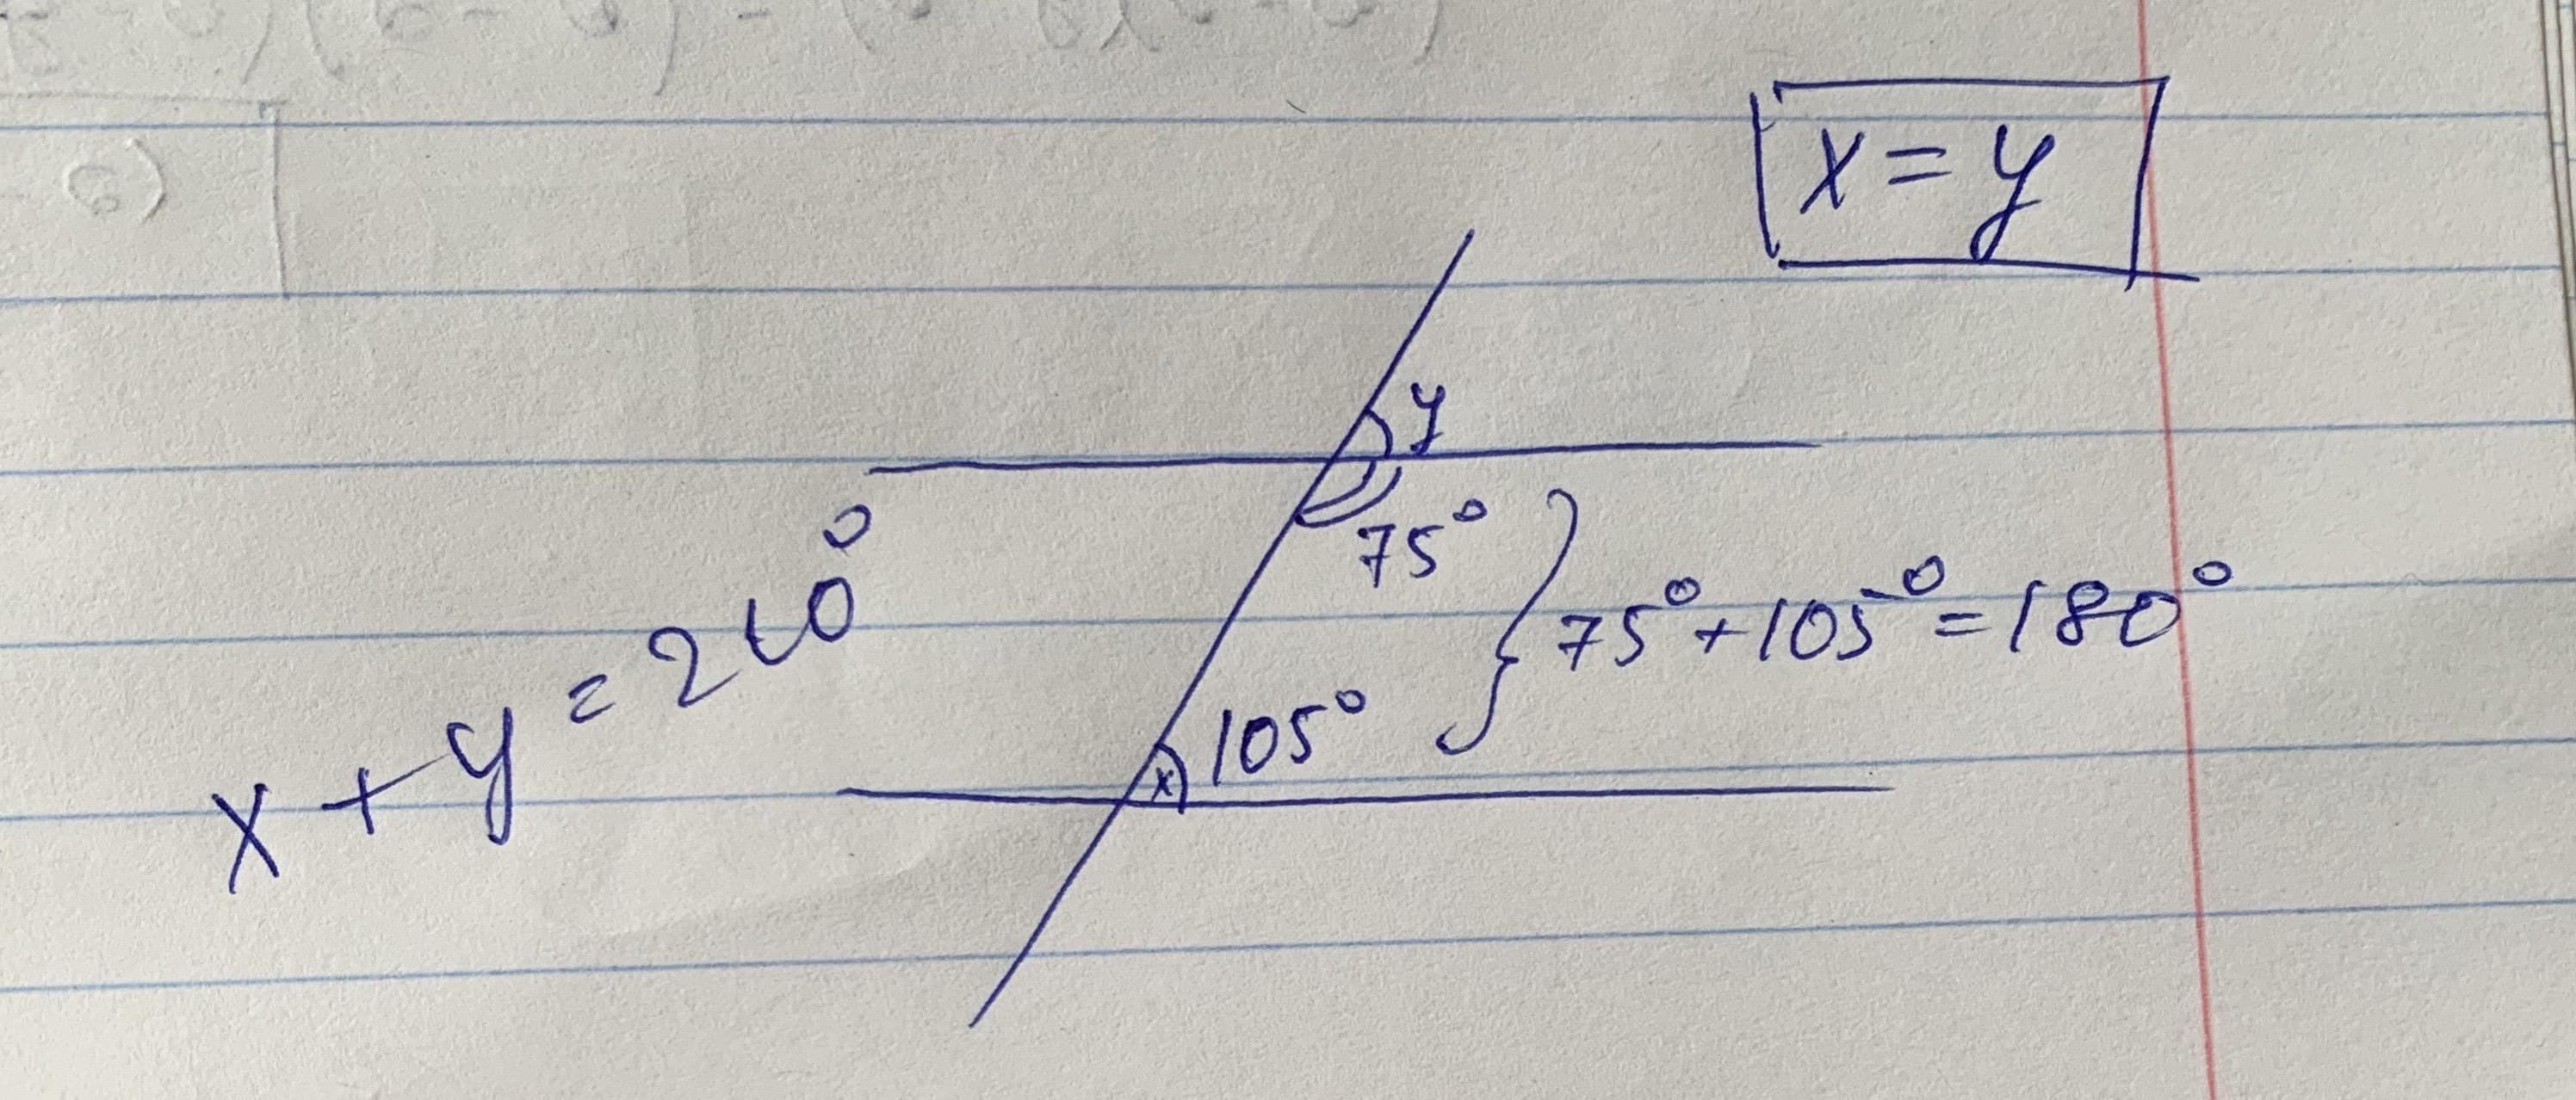 x = y
y
75°
75° + 105° = 180°
105°
x
x + y = 210°